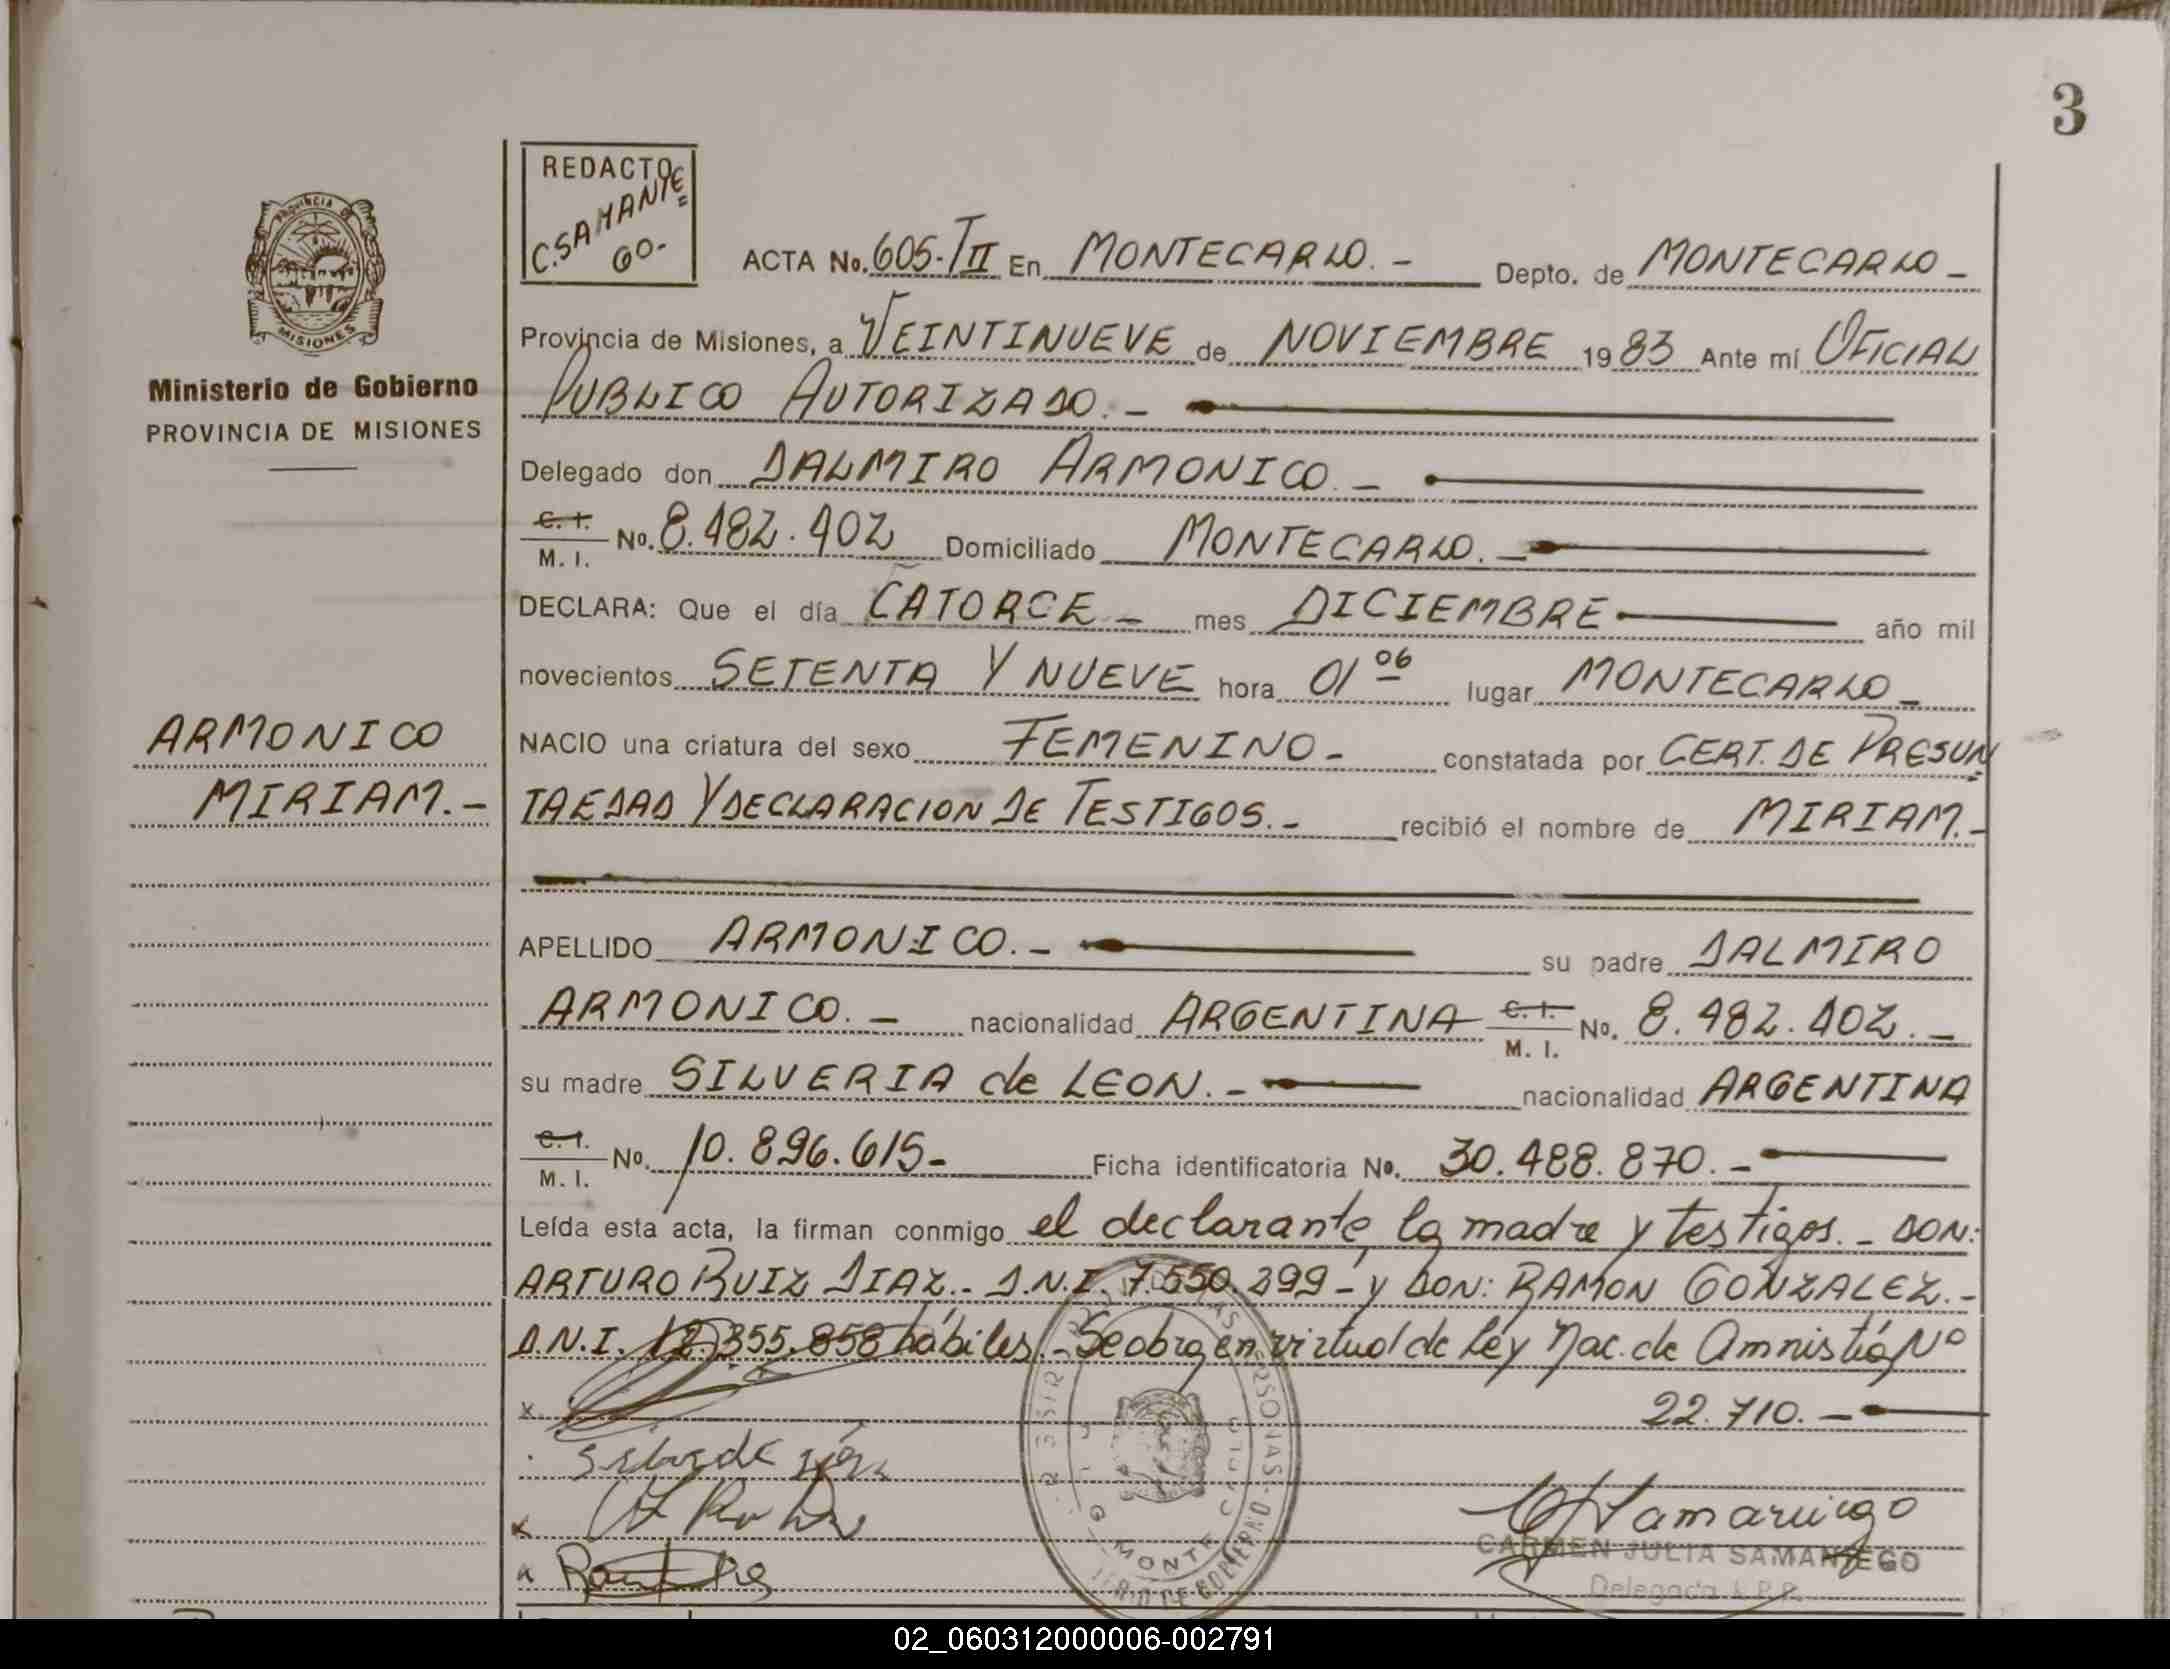 3
REDACTO
C. SAMANIE=
GO-
ACTA No. 605-TII En MONTECARLO.- Depto. de MONTECARLO-
Provincia de Misiones, a VEINTINUEVE de NOVIEMBRE 1983 Ante mí OFICIAL
PUBLICO AUTORIZADO.-
Delegado don DALMIRO ARMONICO.-
C. I.
M. I. No. 8.482.402 Domiciliado MONTECARLO.-
DECLARA: Que el día CATORCE- mes DICIEMBRE año mil
novecientos SETENTA Y NUEVE hora 01 06 lugar MONTECARLO-
NACIO una criatura del sexo FEMENINO- constatada por CERT. DE PRESUN=
TAEDAD Y DECLARACION DE TESTIGOS.- recibió el nombre de MIRIAM.-
APELLIDO ARMONICO.- su padre DALMIRO
ARMONICO.- nacionalidad ARGENTINA C. I.
M. I. No. 8.482.402.-
su madre SILVERIA de LEON.- nacionalidad ARGENTINA
C. I.
M. I. No. 10.896.615- Ficha identificatoria No. 30.488.870.-
Leída esta acta, la firman conmigo el declarante, la madre y testigos.- DON:
ARTURO RUIZ DIAZ.- D.N.I. 7.550.299- y DON: RAMON GONZALEZ.-
D.N.I. 12.355.858 hábiles.- Se obra en virtud de Ley Nac. de Amnistía Nº
22.710.-
CARMEN JULIA SAMANIEGO
Delegada
PROVINCIA DE
MISIONES
Ministerio de Gobierno
PROVINCIA DE MISIONES
ARMONICO
MIRIAM.-
02_060312000006-002791